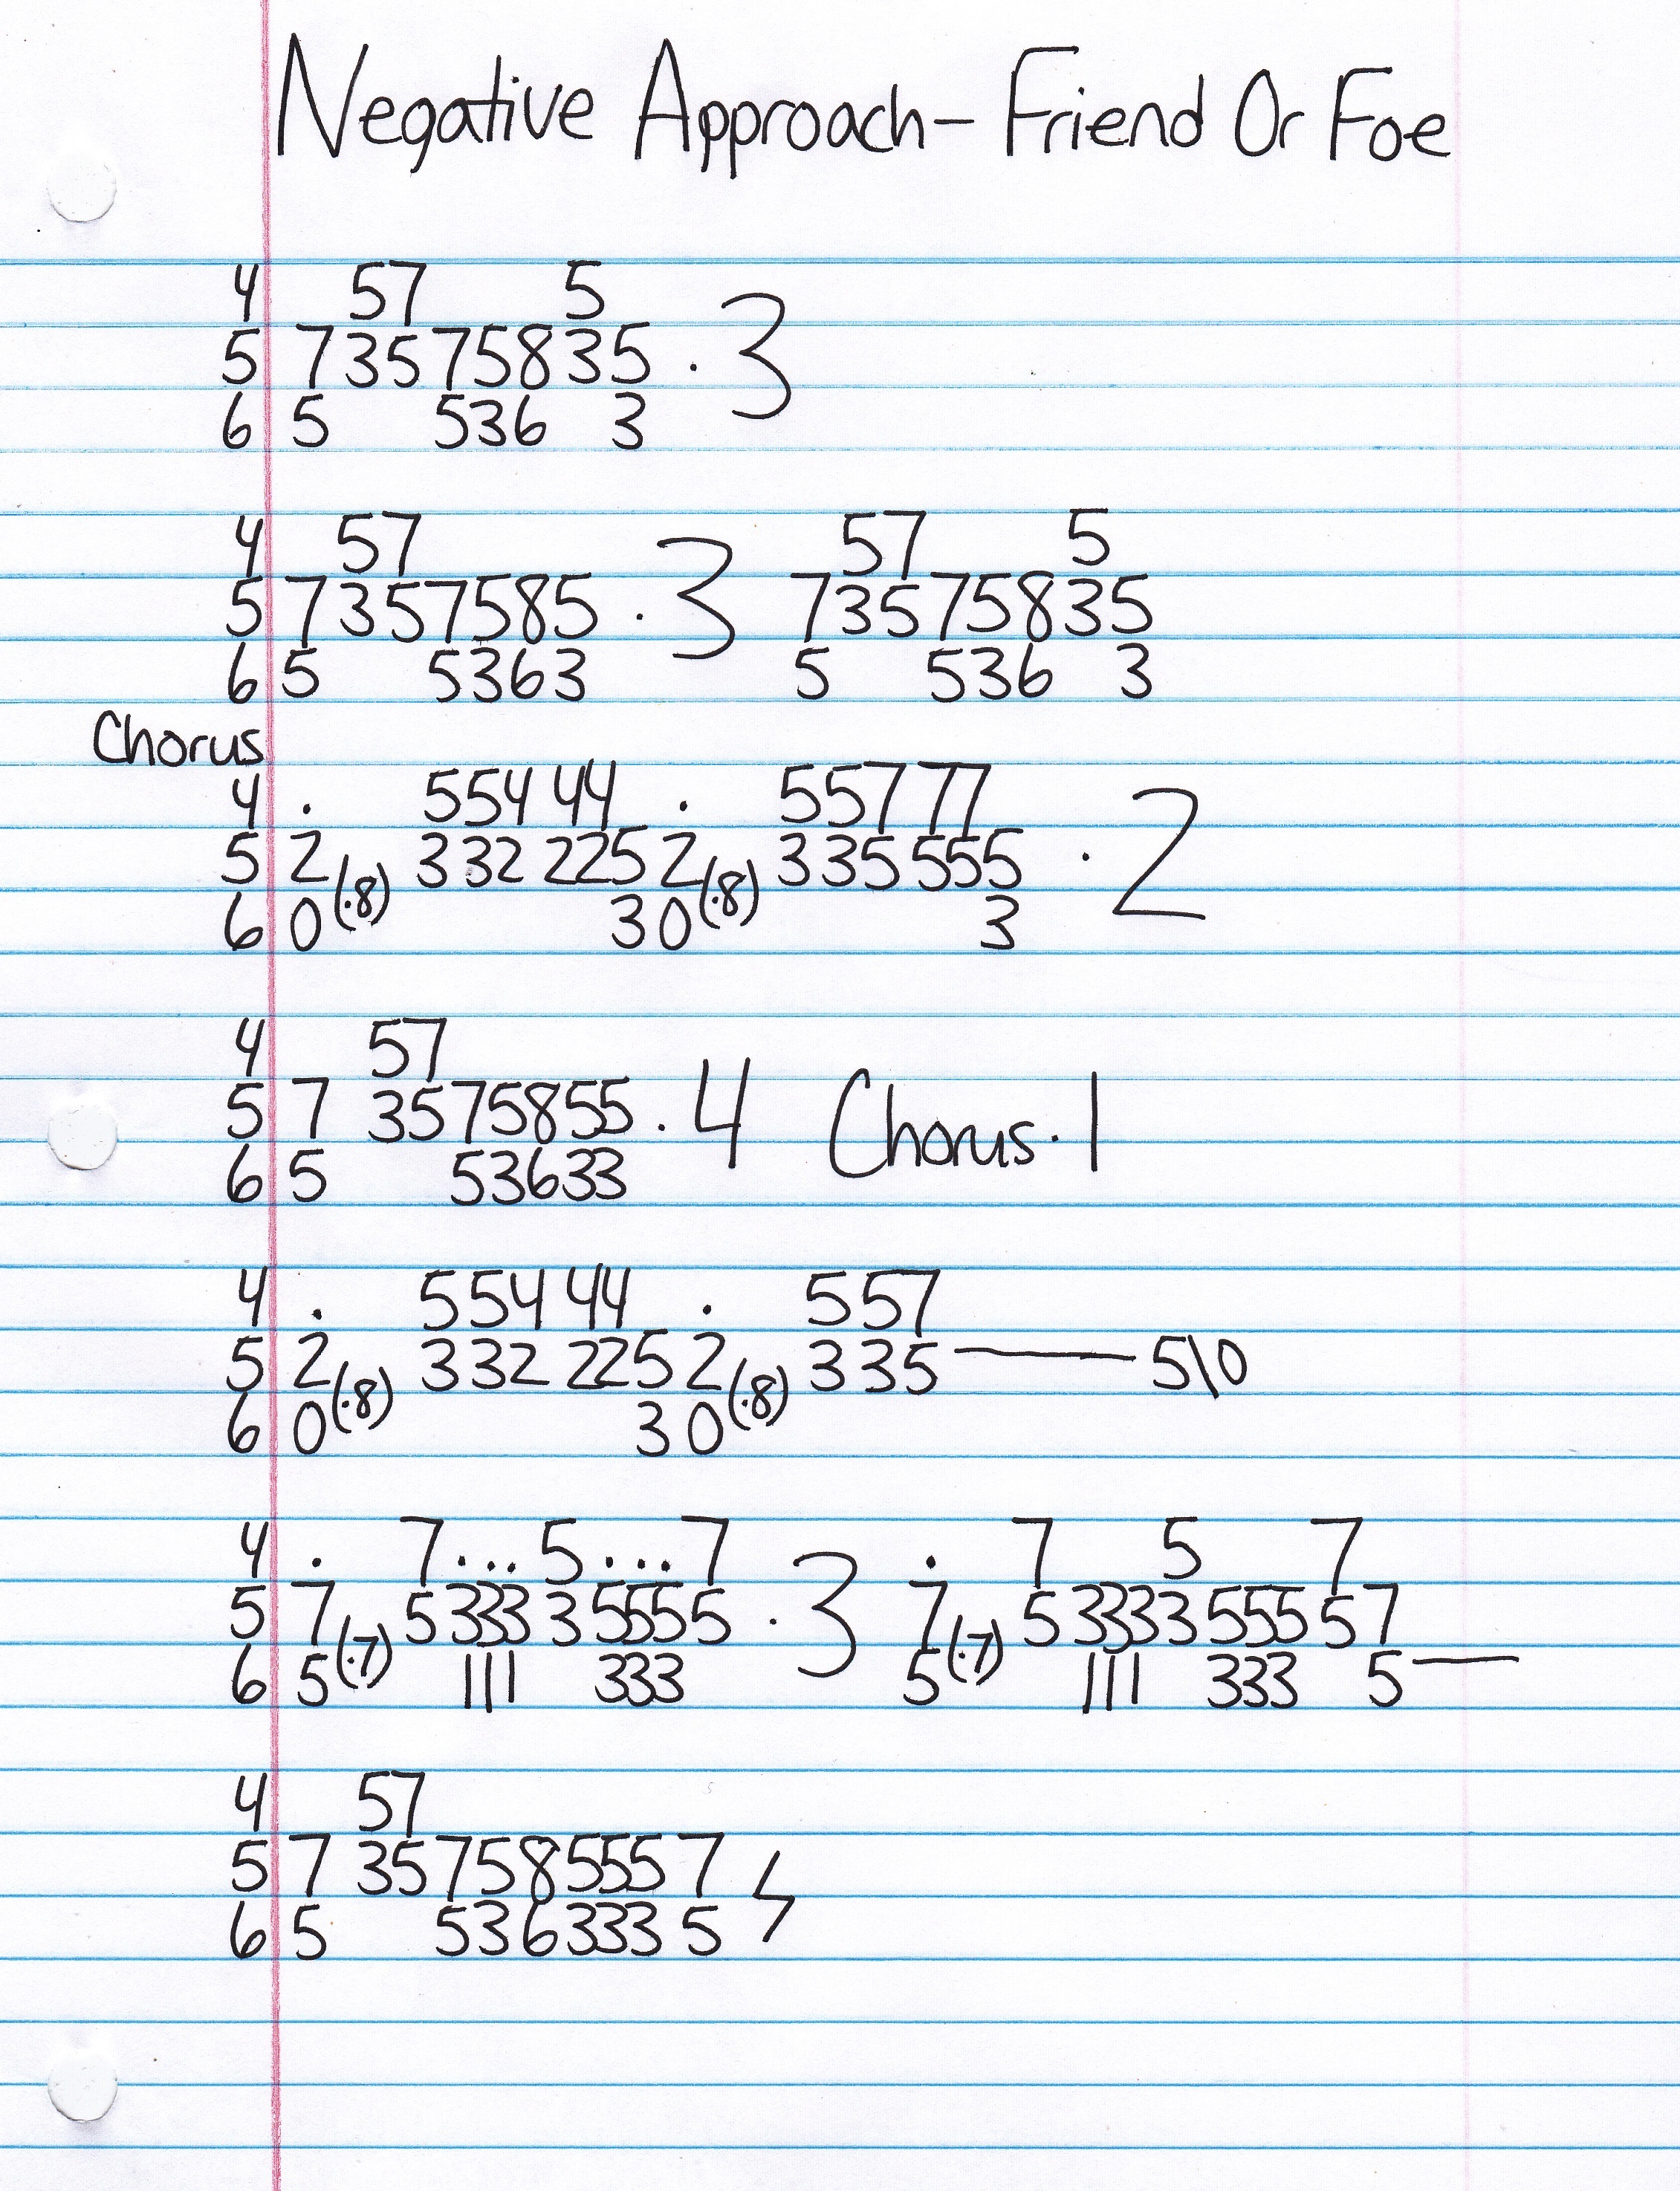 Negative Approach - Friend Or Foe
4 57 5
5 7 3 5 7 5 8 3 5 · 3
6 5 5 3 6 3
4 57 57 5
5 7 3 5 7 5 8 5 · 3 7 3 5 7 5 8 3 5
6 5 5 3 6 3 5 5 3 6 3
Chorus
4 · 5 5 4 4 4 · 5 5 7 7 7
5 2 (·8) 3 3 2 2 2 5 2 (·8) 3 3 5 5 5 5 · 2
6 0 3 0 3
4 57
5 7 3 5 7 5 8 5 5 · 4 Chorus · 1
6 5 5 3 6 3 3
4 · 5 5 4 4 4 · 5 5 7
5 2 (·8) 3 3 2 2 2 5 2 (·8) 3 3 5 —— 5\0
6 0 3 0
4 · 7 ... 5 ... 7 · 7 5 7
5 7 (·7) 5 3 3 3 3 5 5 5 5 · 3 7 (·7) 5 3 3 3 3 5 5 5 5 7
6 5 1 1 1 3 3 3 5 1 1 1 3 3 3 5 —
4 57
5 7 3 5 7 5 8 5 5 5 7
6 5 5 3 6 3 3 3 5